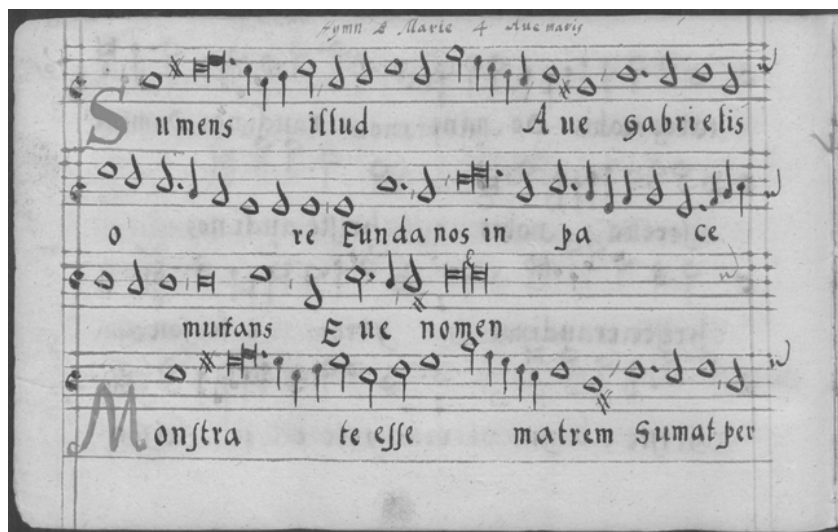 Hymn B Marie 4 Aue maris
Sumens illud Aue Gabrielis
ore Funda nos in pace
mutans Eue nomen
Monstra te esse matrem Sumat per